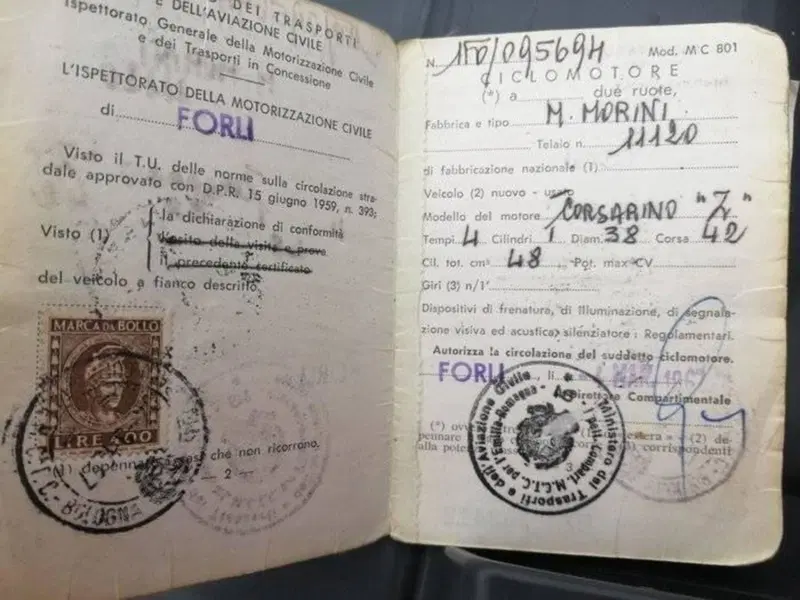 DEI TRASPORTI
E DELL'AVIAZIONE CIVILE
Ispettorato Generale della Motorizzazione Civile
e dei Trasporti in Concessione
L'ISPETTORATO DELLA MOTORIZZAZIONE CIVILE
di FORLI
Visto il T.U. delle norme sulla circolazione stra-
dale approvato con D.P.R. 15 giugno 1959, n. 393;
la dichiarazione di conformità
Visto (1) l'esito della visita e prova
il precedente certificato
del veicolo a fianco descritto.
MARCA DA BOLLO
LIRE 400
BOLOGNA
(1) depennare che non ricorrono.
— 2 —
N. 1FO/095694 Mod. MC 801
CICLOMOTORE
(*) a due ruote,
Fabbrica e tipo M. MORINI
Telaio n. 11120
di fabbricazione nazionale (1)
Veicolo (2) nuovo - usato
Modello del motore CORSARINO "Z"
Tempi 4 Cilindri 1 Diam. 38 Corsa 42
Cil. tot. cm³ 48 Pot. max CV
Giri (3) n/1'
Dispositivi di frenatura, di illuminazione, di segnala-
zione visiva ed acustica, silenziatore: Regolamentari.
Autorizza la circolazione del suddetto ciclomotore.
FORLI, li MAR. 196
Il Direttore Compartimentale
Ministero dei Trasporti e dell'Aviazione Civile
Compart. M.C.T.C. per l'Emilia-Romagna
(2) de-
pennare corrispondenti
alla